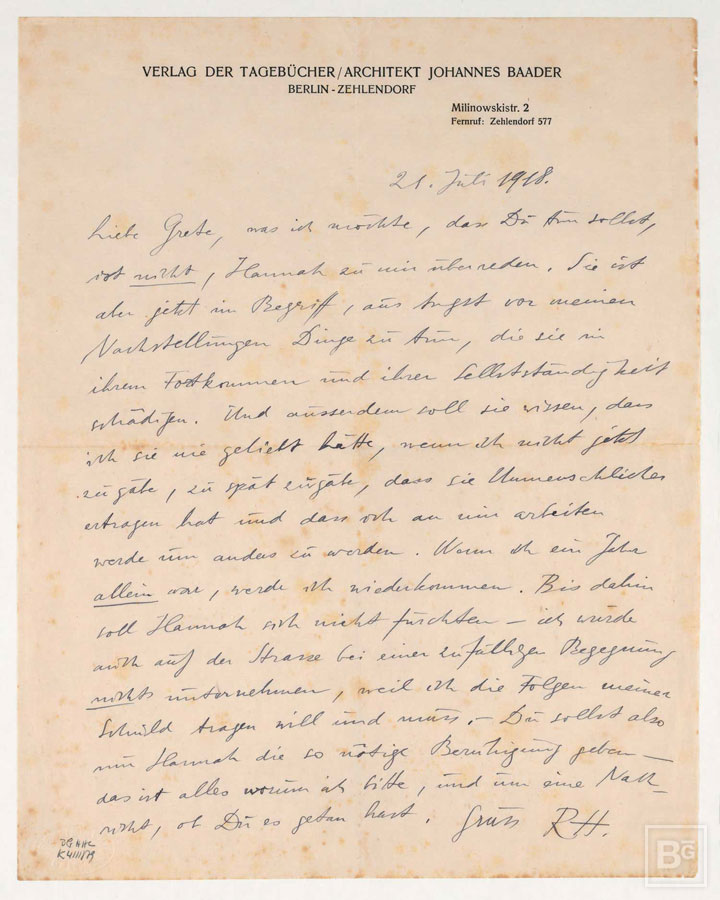 VERLAG DER TAGEBÜCHER/ARCHITEKT JOHANNES BAADER
BERLIN-ZEHLENDORF
Milinowskistr. 2
Fernruf: Zehlendorf 577
21. Juli 1918.
Liebe Grete, was ich möchte, dass Du tun sollst,
ist nicht, Hannah zu mir überreden. Sie ist
aber jetzt im Begriff, aus Angst vor meinen
Nachstellungen Dinge zu tun, die sie in
ihrem Fortkommen und ihrer Selbstständigkeit
schädigen. Und ausserdem soll sie wissen, dass
ich sie nie geliebt hätte, wenn ich nicht jetzt
zugäbe, zu spät zugäbe, dass sie Unmenschliches
ertragen hat und dass ich an mir arbeiten
werde um anders zu werden. Wenn ich ein Jahr
allein war, werde ich wiederkommen. Bis dahin
soll Hannah sich nicht fürchten – ich würde
auch auf der Strasse bei einer zufälligen Begegnung
nichts unternehmen, weil ich die Folgen meiner
Schuld tragen will und muss. – Du sollst also
nun Hannah die so nötige Beruhigung geben –
das ist alles worum ich bitte, und um eine Nach-
richt, ob Du es getan hast. Gruss RH.
DG HHC
K 4111/79
BG